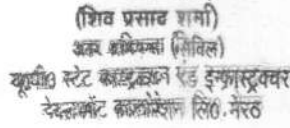 (शिव प्रसाद शर्मा)
अवर अभियन्ता (सिविल)
यू०पी० स्टेट कन्स्ट्रक्शन एंड इन्फ्रास्ट्रक्चर
डेवलपमेंट कारपोरेशन लि०, मेरठ